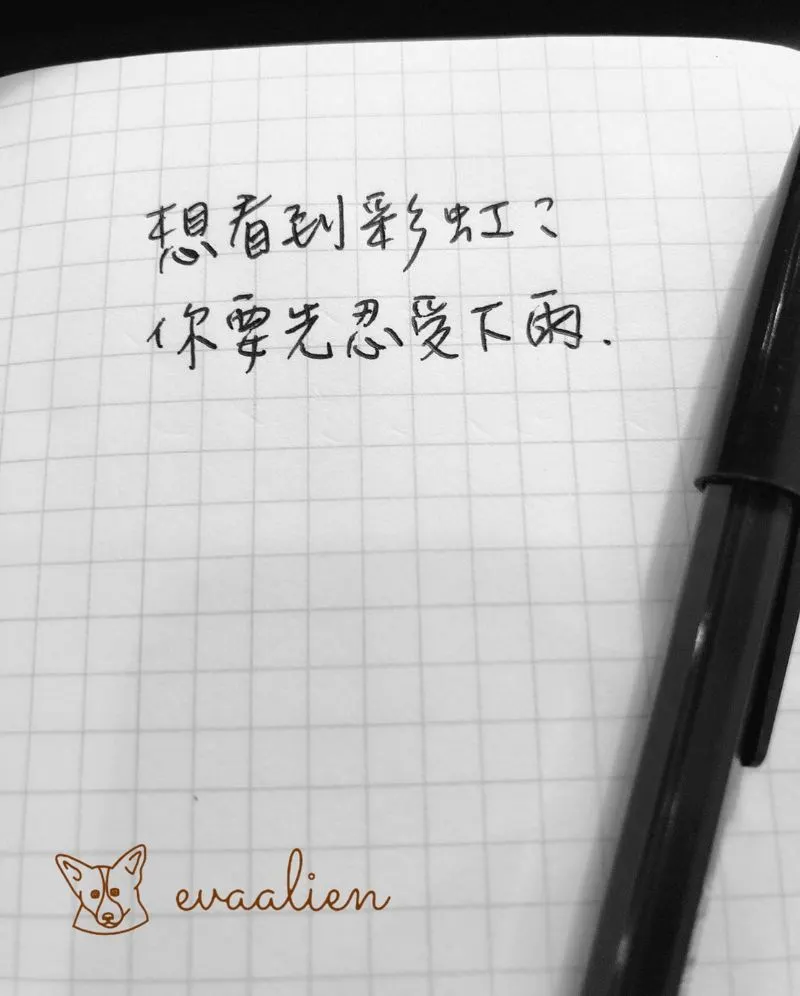 想看到彩虹？
你要先忍受下雨.
evaalien